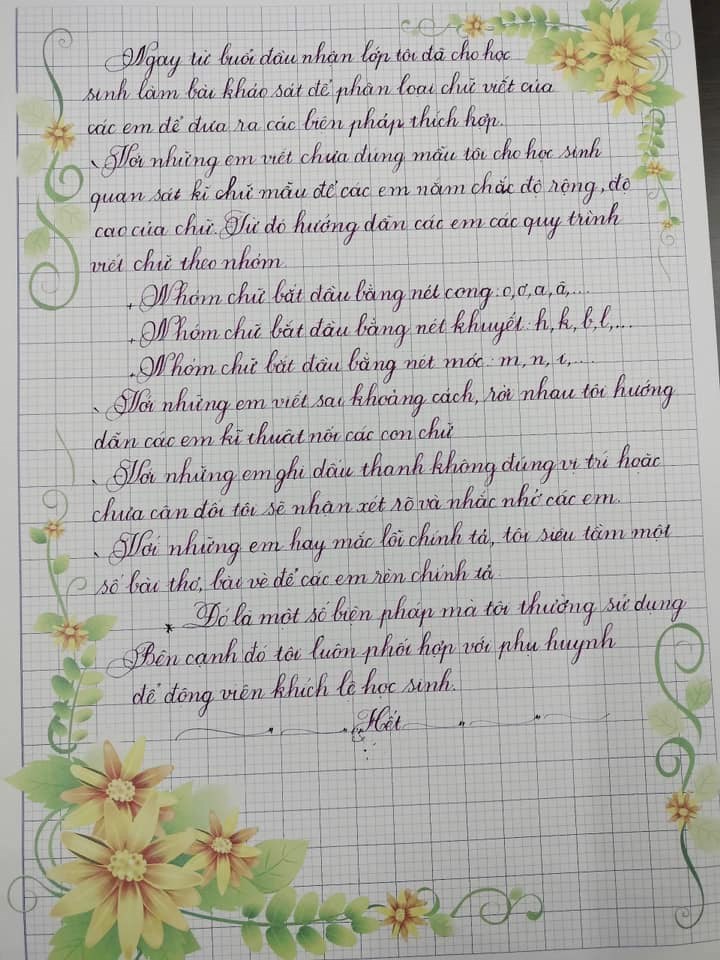 Ngay từ buổi đầu nhận lớp tôi đã cho học
sinh làm bài khảo sát để phân loại chữ viết của
các em để đưa ra các biện pháp thích hợp.
, Với những em viết chưa đúng mẫu tôi cho học sinh
quan sát kĩ chữ mẫu để các em nắm chắc độ rộng, độ
cao của chữ. Từ đó hướng dẫn các em các quy trình
viết chữ theo nhóm.
+ Nhóm chữ bắt đầu bằng nét cong: o, ơ, a, ă,...
+ Nhóm chữ bắt đầu bằng nét khuyết: h, k, b, l,...
+ Nhóm chữ bắt đầu bằng nét móc: m, n, i,...
, Với những em viết sai khoảng cách, rời nhau tôi hướng
dẫn các em kĩ thuật nối các con chữ
, Với những em ghi dấu thanh không đúng vị trí hoặc
chưa cân đối tôi sẽ nhận xét rõ và nhắc nhở các em.
, Với những em hay mắc lỗi chính tả, tôi siêu tầm một
số bài thơ, bài vè để các em rèn chính tả.
* Đó là một số biện pháp mà tôi thường sử dụng
Bên cạnh đó tôi luôn phối hợp với phụ huynh
để động viên khích lệ học sinh.
Hết